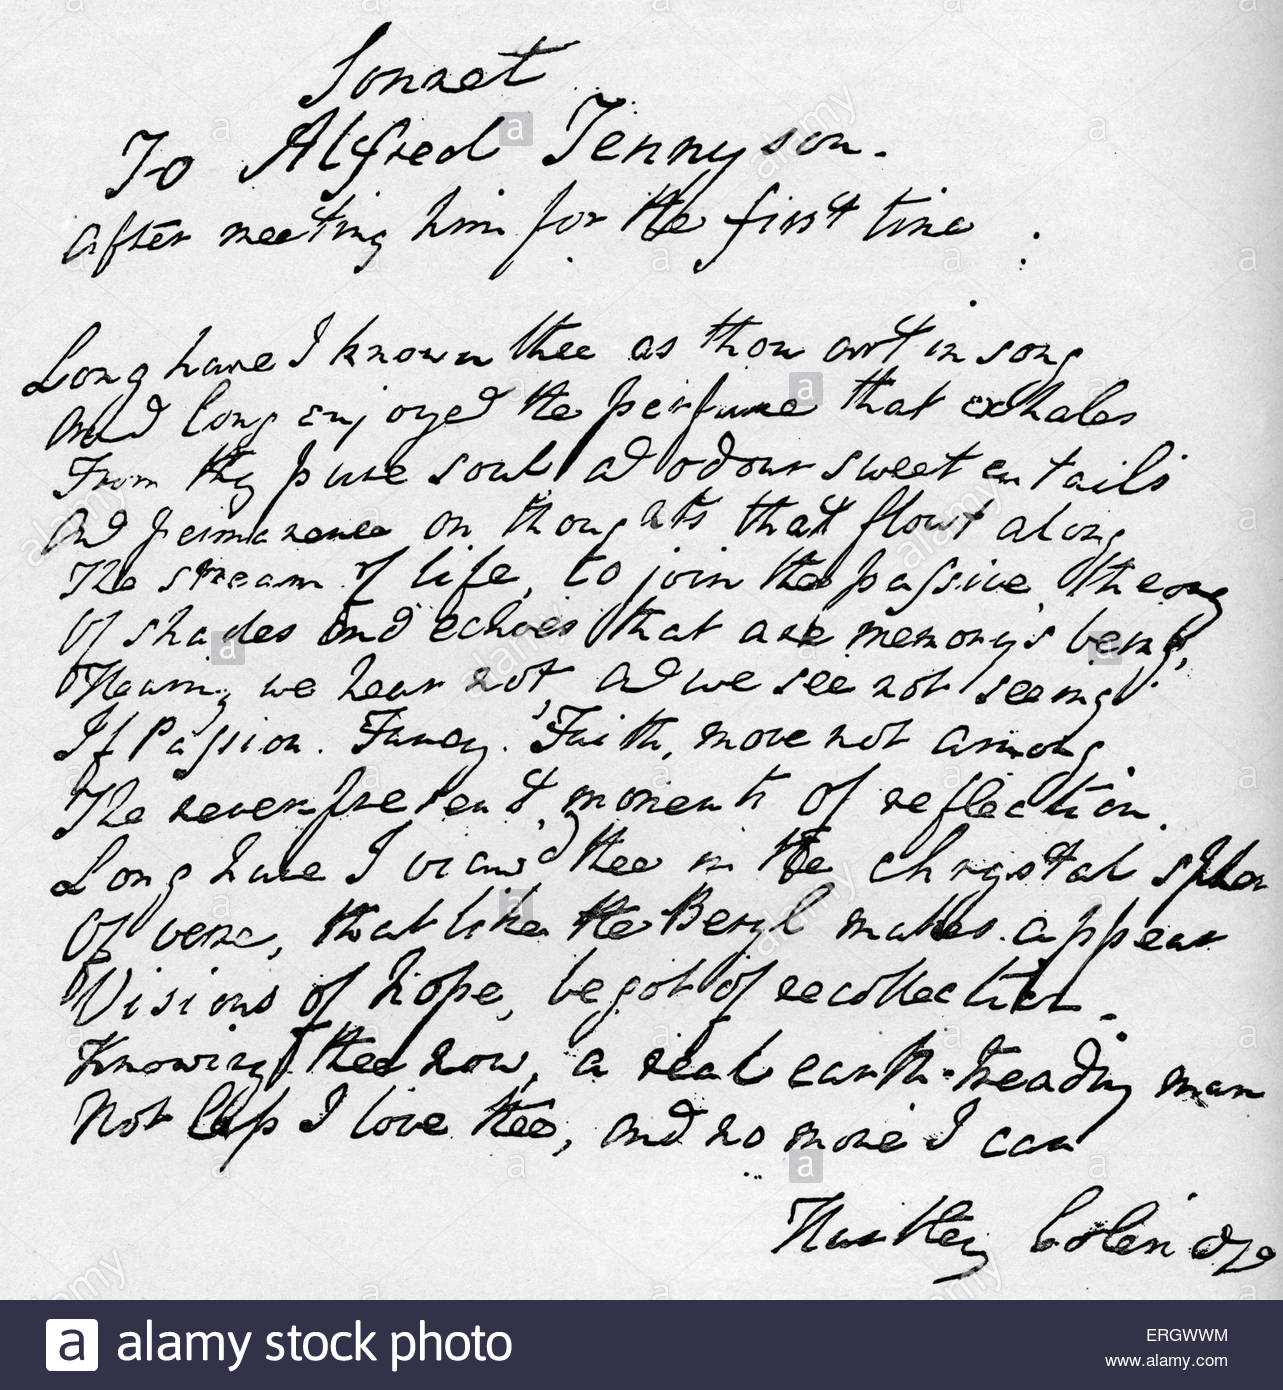 Sonnet
To Alfred Tennyson.
after meeting him for the first time :
Long have I known thee as thou art in song
And long enjoyed the perfume that exhales
From thy pure soul ad odour sweet entails
Ad permanence on thoughts that flowt along
The stream of life, to join the passive theong
Of shades and echoes that are memorys being,
Hearing we hear not, ad we see not seeing
If Passion. Fancy. Faith, move not among
The never present moments of reflection.
Long have I view'd thee in the chrystal spher
Of verse, that like the Beryl makes appear
Visions of hope, begot of recollection.
Knowing thee now, a real earth-treading man
Not less I love thee, and no more I can
Hartley Coleridge
a alamy stock photo
ERGWWM
www.alamy.com